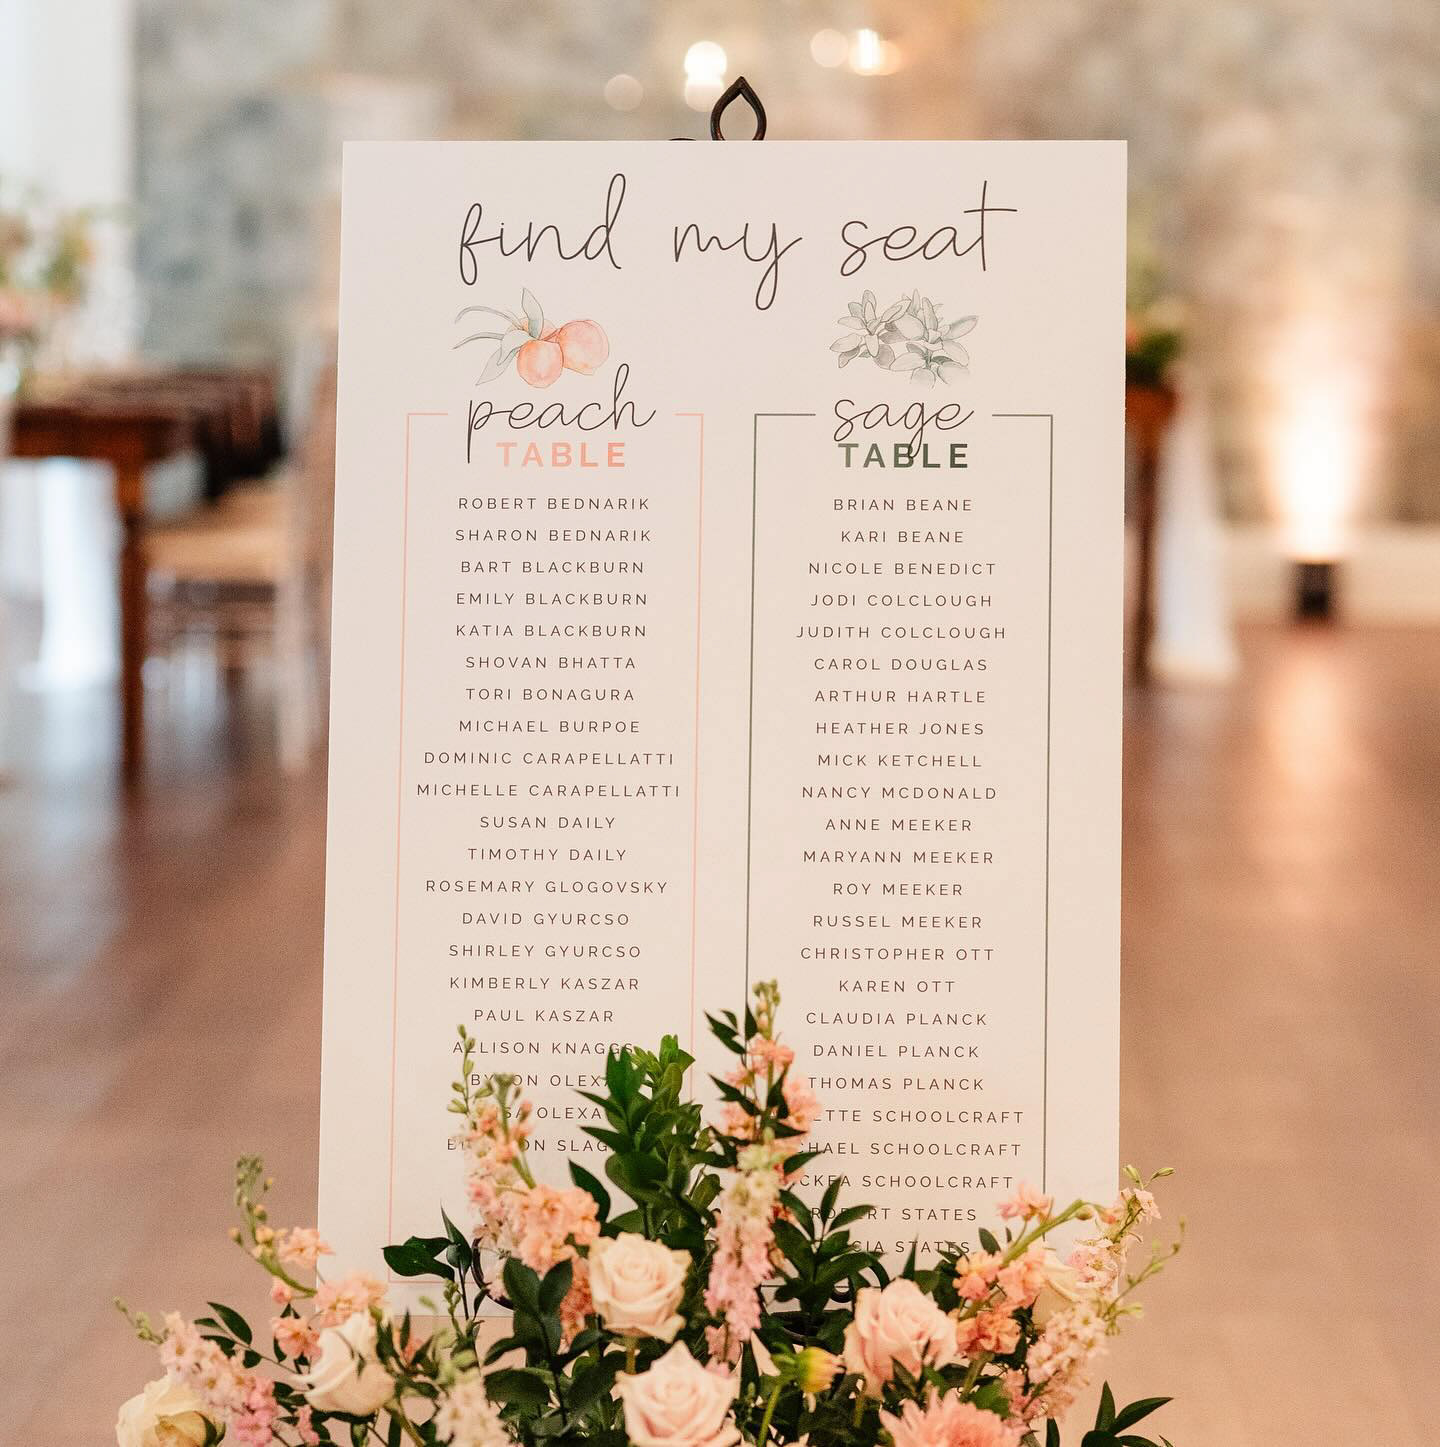 find my seat
peach
TABLE
ROBERT BEDNARIK
SHARON BEDNARIK
BART BLACKBURN
EMILY BLACKBURN
KATIA BLACKBURN
SHOVAN BHATTA
TORI BONAGURA
MICHAEL BURPOE
DOMINIC CARAPELLATTI
MICHELLE CARAPELLATTI
SUSAN DAILY
TIMOTHY DAILY
ROSEMARY GLOGOVSKY
DAVID GYURCSO
SHIRLEY GYURCSO
KIMBERLY KASZAR
PAUL KASZAR
ALLISON KNAGGS
sage
TABLE
BRIAN BEANE
KARI BEANE
NICOLE BENEDICT
JODI COLCLOUGH
JUDITH COLCLOUGH
CAROL DOUGLAS
ARTHUR HARTLE
HEATHER JONES
MICK KETCHELL
NANCY MCDONALD
ANNE MEEKER
MARYANN MEEKER
ROY MEEKER
RUSSEL MEEKER
CHRISTOPHER OTT
KAREN OTT
CLAUDIA PLANCK
DANIEL PLANCK
THOMAS PLANCK
SCHOOLCRAFT
SCHOOLCRAFT
SCHOOLCRAFT
ROBERT STATES
STATES